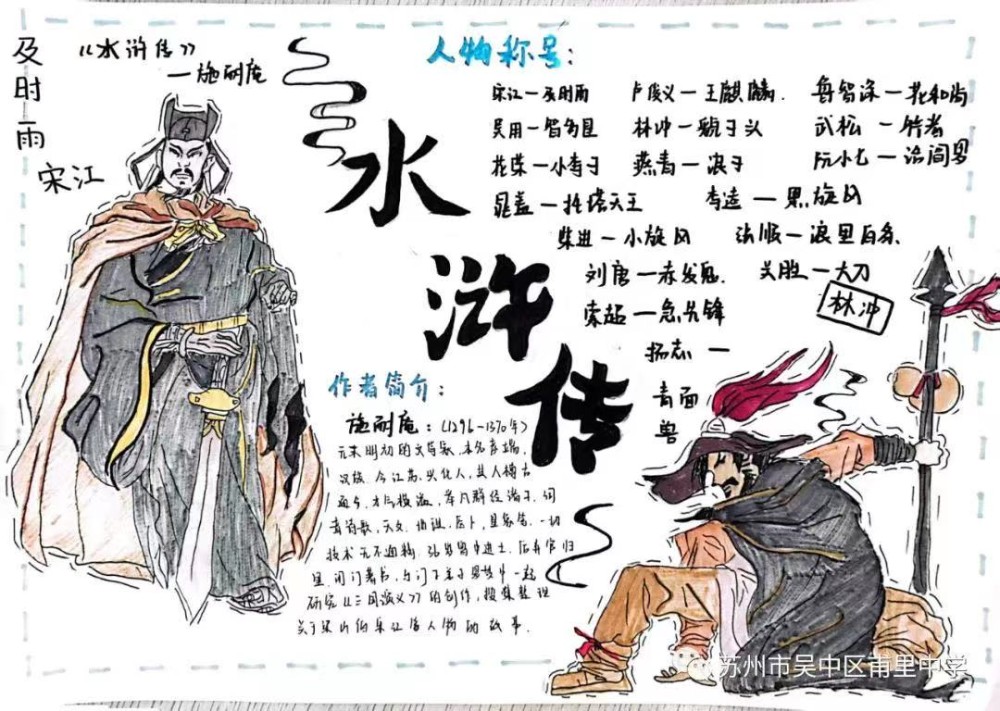 及时雨
宋江
《水浒传》
—施耐庵
水浒传
人物称号：
宋江—及时雨 卢俊义—玉麒麟. 鲁智深—花和尚
吴用—智多星 林冲—豹子头 武松—行者
花荣—小李广 燕青—浪子 阮小七—活阎罗
晁盖—托塔天王 李逵—黑旋风
柴进—小旋风 张顺—浪里白条.
刘唐—赤发鬼. 关胜—大刀
索超—急先锋
杨志—
青面
兽
林冲
作者简介：
施耐庵：（1296-1370年）
元末明初的文学家，本名彦端，
汉族，今江苏兴化人，其人博古
通今，才气横溢，举凡群经诸子，词
章诗歌，天文、地理、医卜、星象等，一切
技术无不精. 35岁曾中进士. 后弃官归
里，闭门著书，与门下弟子罗贯中一起
研究《三国演义》的创作，搜集整理
关于梁山伯宋江等人物的故事.
苏州市吴中区甪里中学